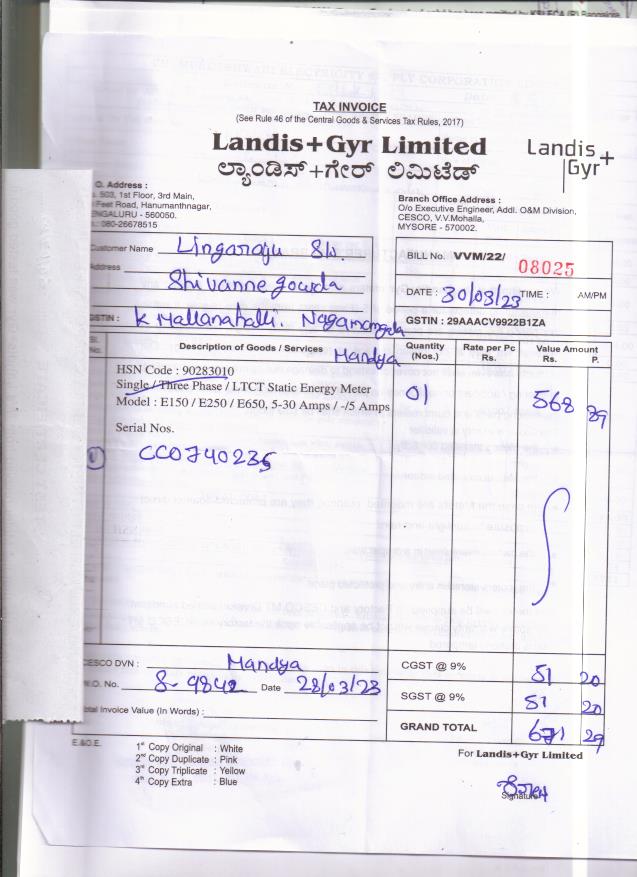 TAX INVOICE
(See Rule 46 of the Central Goods & Services Tax Rules, 2017)
Landis+Gyr Limited
ಲ್ಯಾಂಡಿಸ್+ಗೇರ್ ಲಿಮಿಟೆಡ್
Landis+
Gyr
O. Address :
503, 1st Floor, 3rd Main,
Feet Road, Hanumanthnagar,
ENGALURU - 560050.
: 080-26678515
Branch Office Address :
O/o Executive Engineer, Addl. O&M Division,
CESCO, V.V.Mohalla,
MYSORE - 570002.
Customer Name Lingaraju S/o.
Address Shivannegowda
GSTIN : K Mallanahalli. Nagamangala
Mandya
BILL No. VVM/22/ 08025
DATE : 30/03/23 TIME : AM/PM
GSTIN : 29AAACV9922B1ZA
Sl. No. Description of Goods / Services Quantity (Nos.) Rate per Pc Rs. Value Amount Rs. P.
HSN Code : 90283010
Single / Three Phase / LTCT Static Energy Meter 01 568 89
Model : E150 / E250 / E650, 5-30 Amps / -/5 Amps
Serial Nos.
1 CC0740236
CESCO DVN : Mandya
W.O. No. 8-9842 Date 28/03/23
Total Invoice Value (In Words) :
CGST @ 9% 51 20
SGST @ 9% 51 20
GRAND TOTAL 671 29
E.&O.E.
1st Copy Original : White
2nd Copy Duplicate : Pink
3rd Copy Triplicate : Yellow
4th Copy Extra : Blue
For Landis+Gyr Limited
Signature